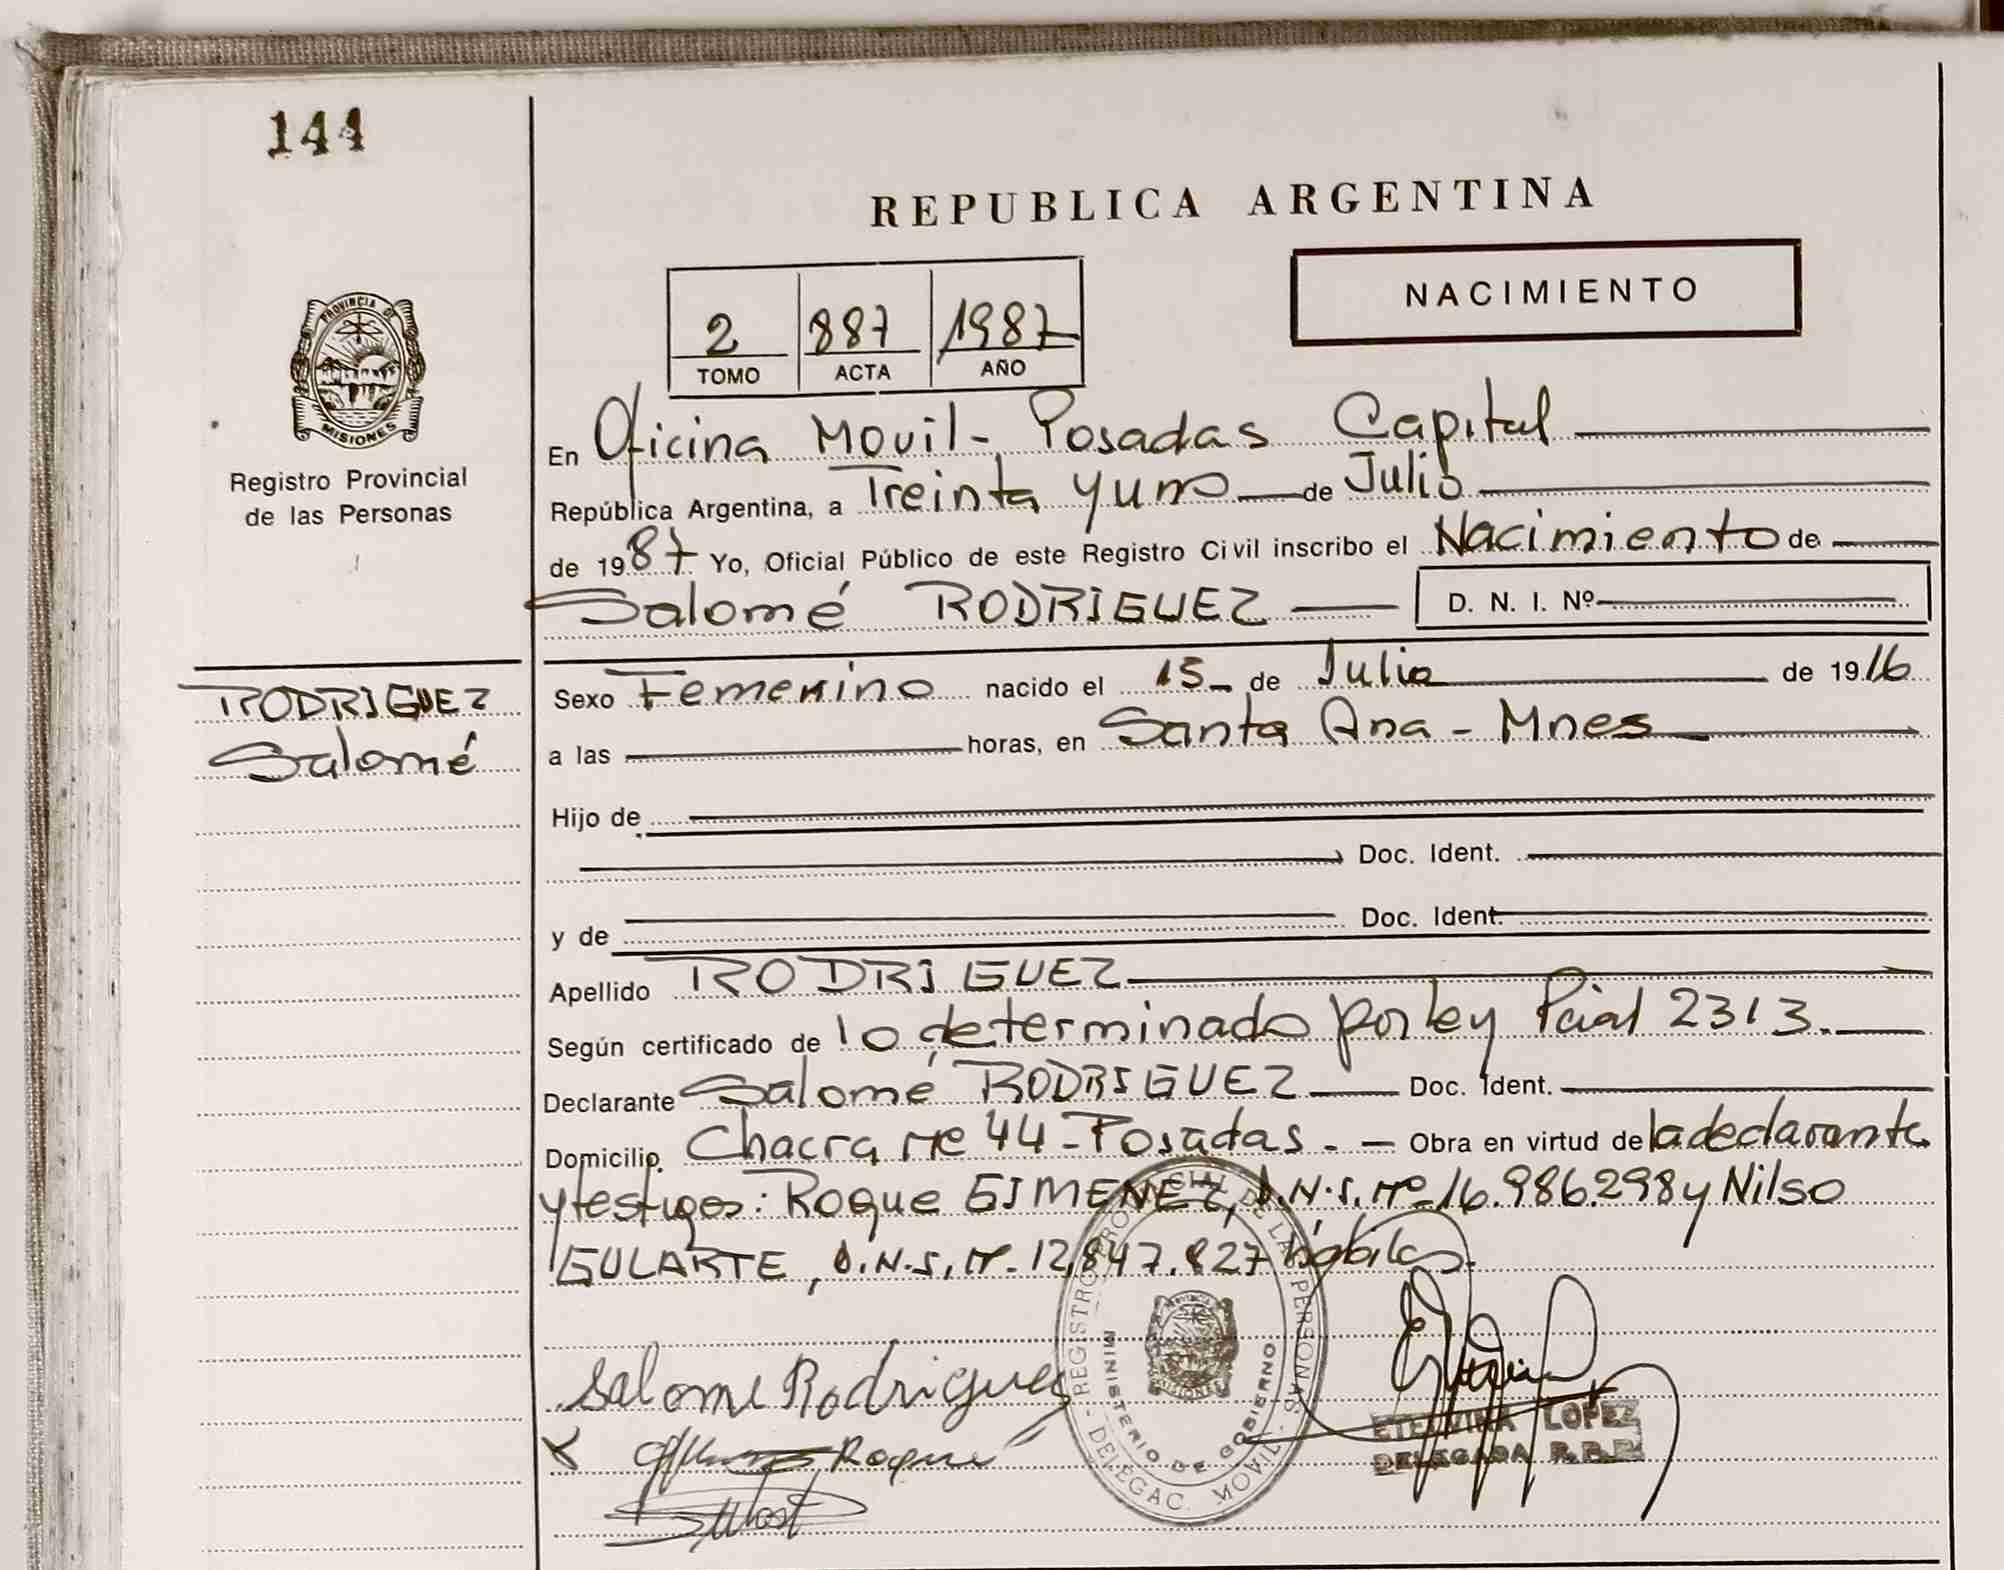 144
REPUBLICA ARGENTINA
NACIMIENTO
2 887 1987
TOMO ACTA AÑO
PROVINCIA DE
MISIONES
Registro Provincial
de las Personas
En Oficina Movil - Posadas Capital
República Argentina, a Treinta y uno de Julio
de 1987 Yo, Oficial Público de este Registro Civil inscribo el Nacimiento de
Salomé RODRIGUEZ D. N. I. Nº
RODRIGUEZ
Salomé
Sexo Femenino nacido el 15 de Julio de 1916
a las horas, en Santa Ana - Mnes
Hijo de
Doc. Ident.
y de Doc. Ident.
Apellido RODRIGUEZ
Según certificado de lo determinado por ley Pcial 2313.
Declarante Salomé RODRIGUEZ Doc. Ident.
Domicilio Chacra Nº 44 - Posadas. - Obra en virtud de la declarante
y testigos: Roque GIMENEZ, D.N.I. Nº 16.986.298 y Nilso
GULARTE, D.N.I. Nº 12.847.827 hábiles.
Salome Rodrigues
Roque
REGISTRO PROVINCIAL DE LAS PERSONAS - DELEGAC. MOVIL -
MINISTERIO DE GOBIERNO
MISIONES
ETELVINA LOPEZ
DELEGADA R.P.P.